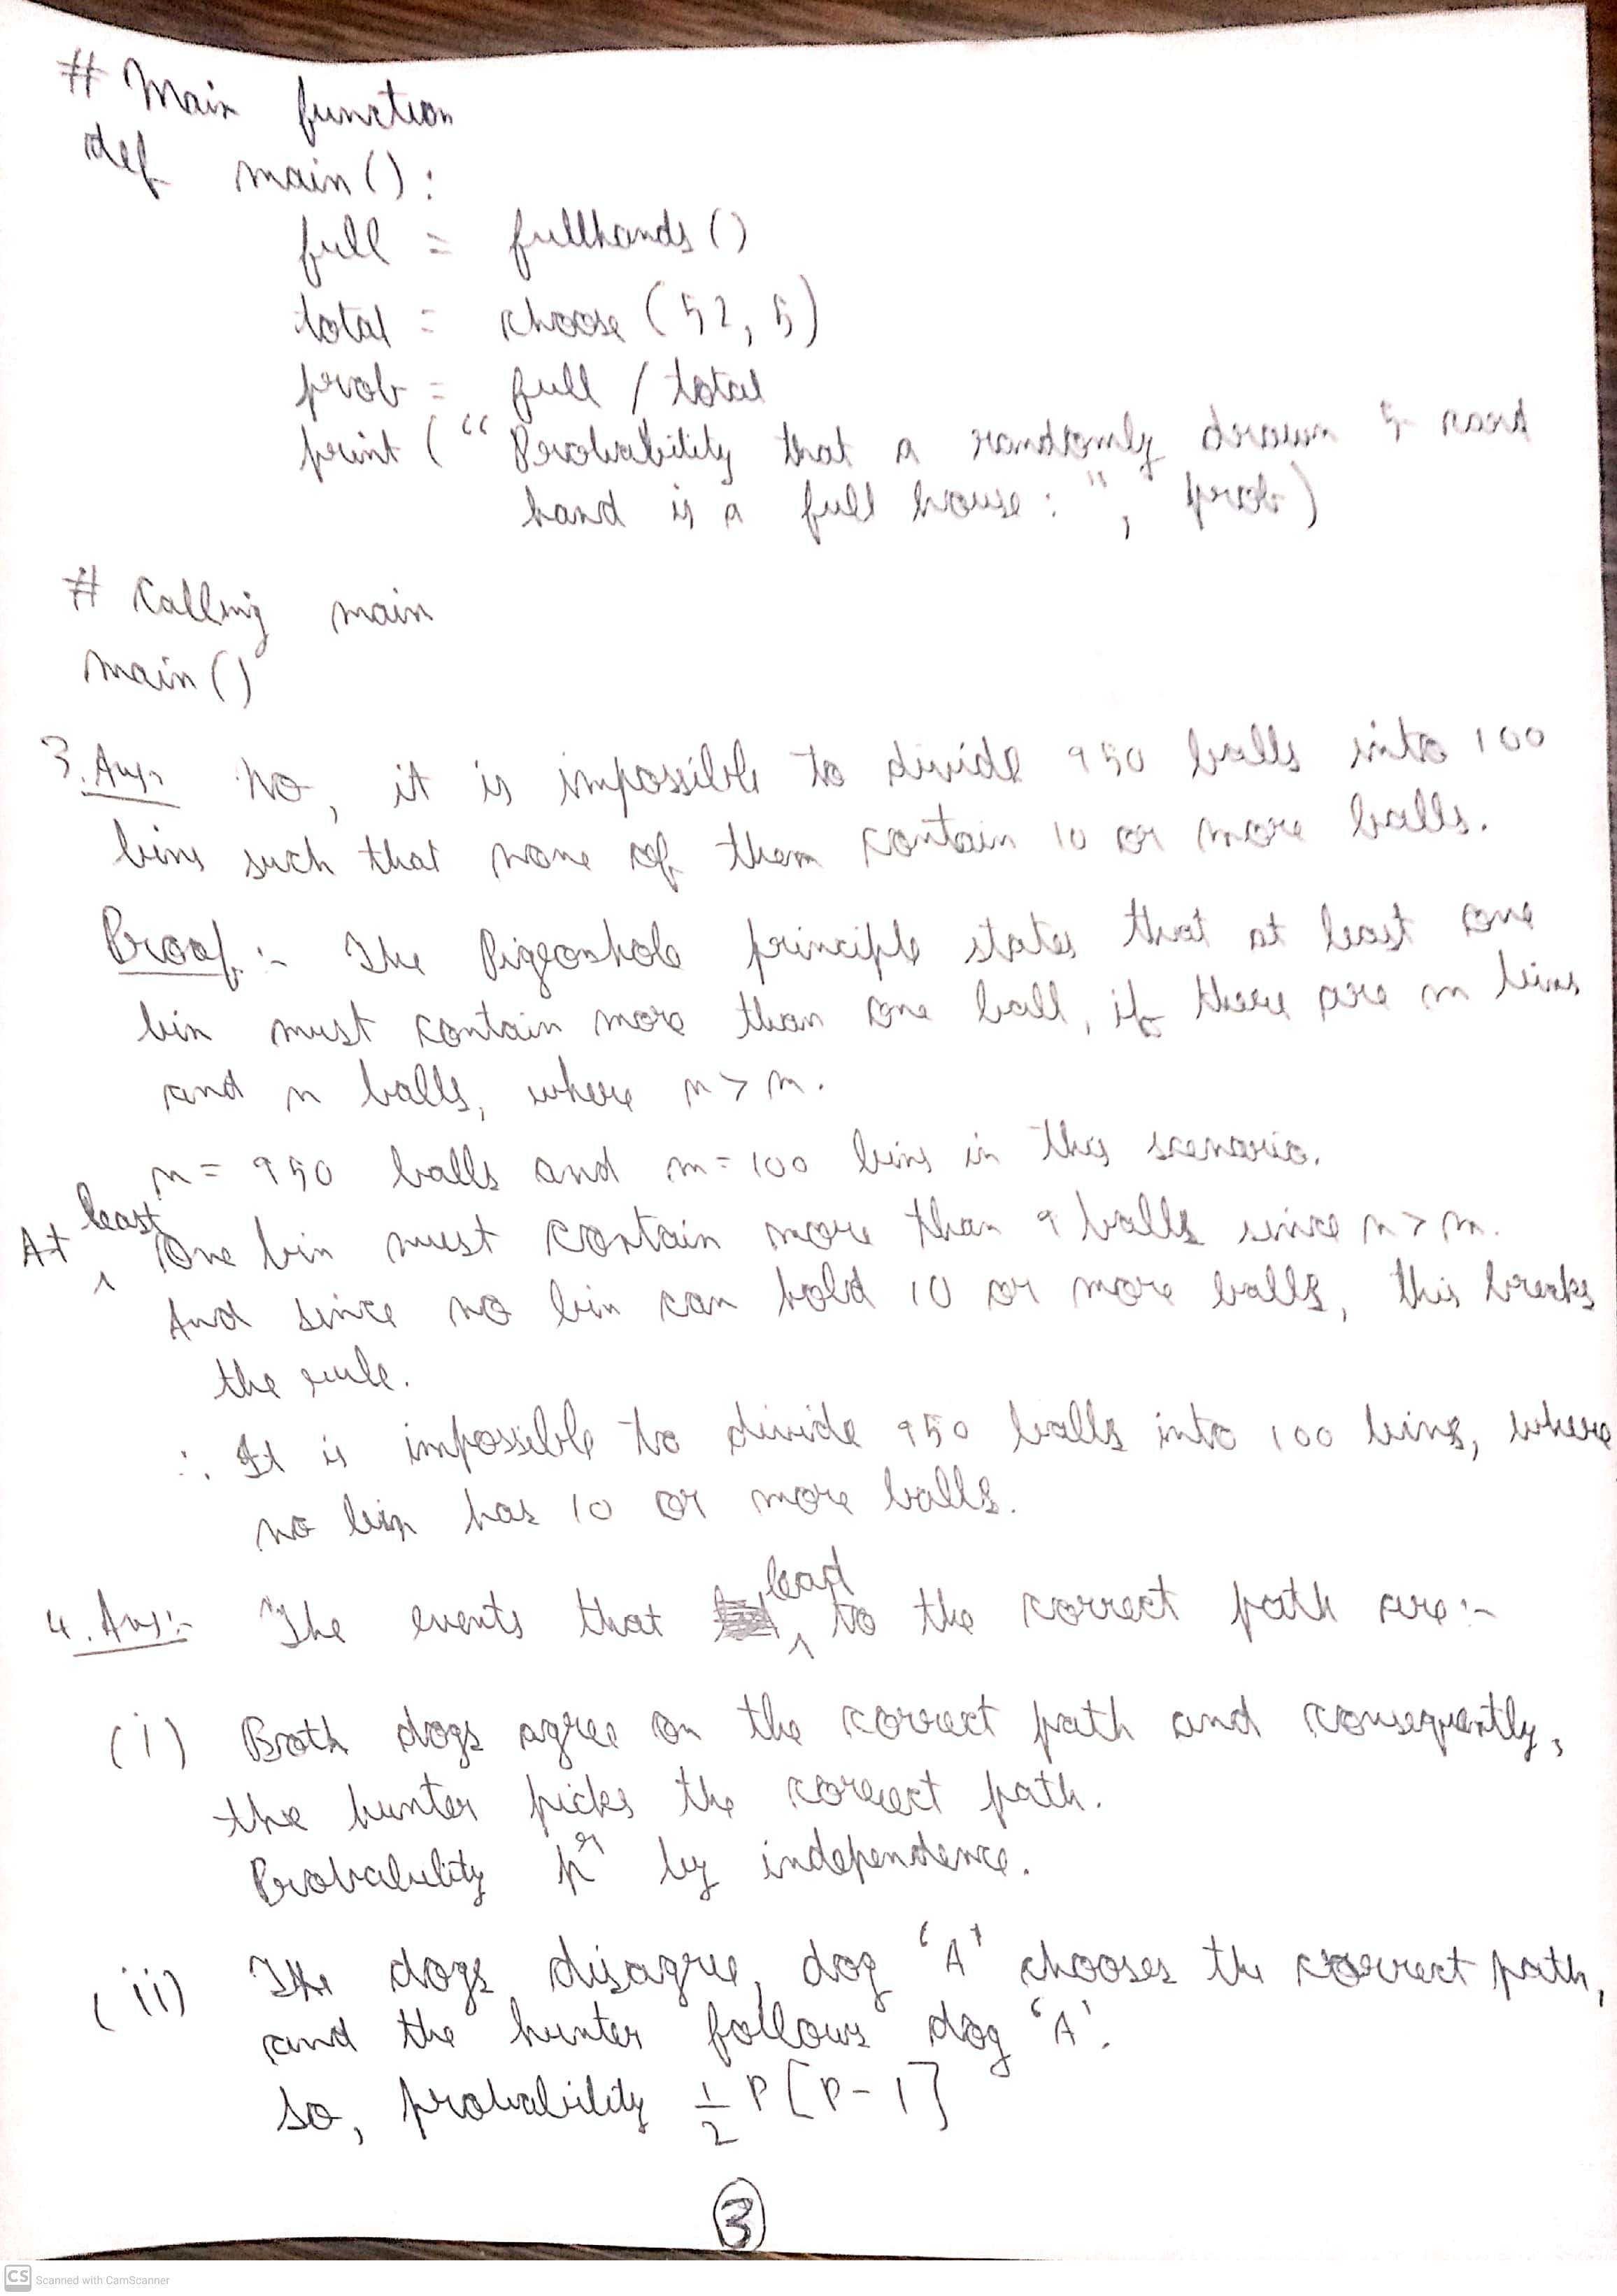 # Main function
def main():
full = fullhands()
total = choose (52, 5)
prob = full / total
print ("Probability that a randomly drawn 5 card
hand is a full house: ", prob)
# Calling main
main()
3. Ans:- No, it is impossible to divide 950 balls into 100
bins such that none of them contain 10 or more balls.
Proof :- The Pigeonhole principle states that at least one
bin must contain more than one ball, if there are m bins
and n balls, where n > m.
n = 950 balls and m = 100 bins in this scenario.
At least one bin must contain more than 9 balls since n > m.
And since no bin can hold 10 or more balls, this breaks
the rule.
∴ It is impossible to divide 950 balls into 100 bins, where
no bin has 10 or more balls.
4. Ans:- The events that lead to the correct path are:-
(i) Both dogs agree on the correct path and consequently,
the hunter picks the correct path.
Probability p² by independence.
(ii) The dogs disagree, dog 'A' chooses the correct path,
and the hunter follows dog 'A'.
So, probability 1/2 P[P-1]
3
CS Scanned with CamScanner